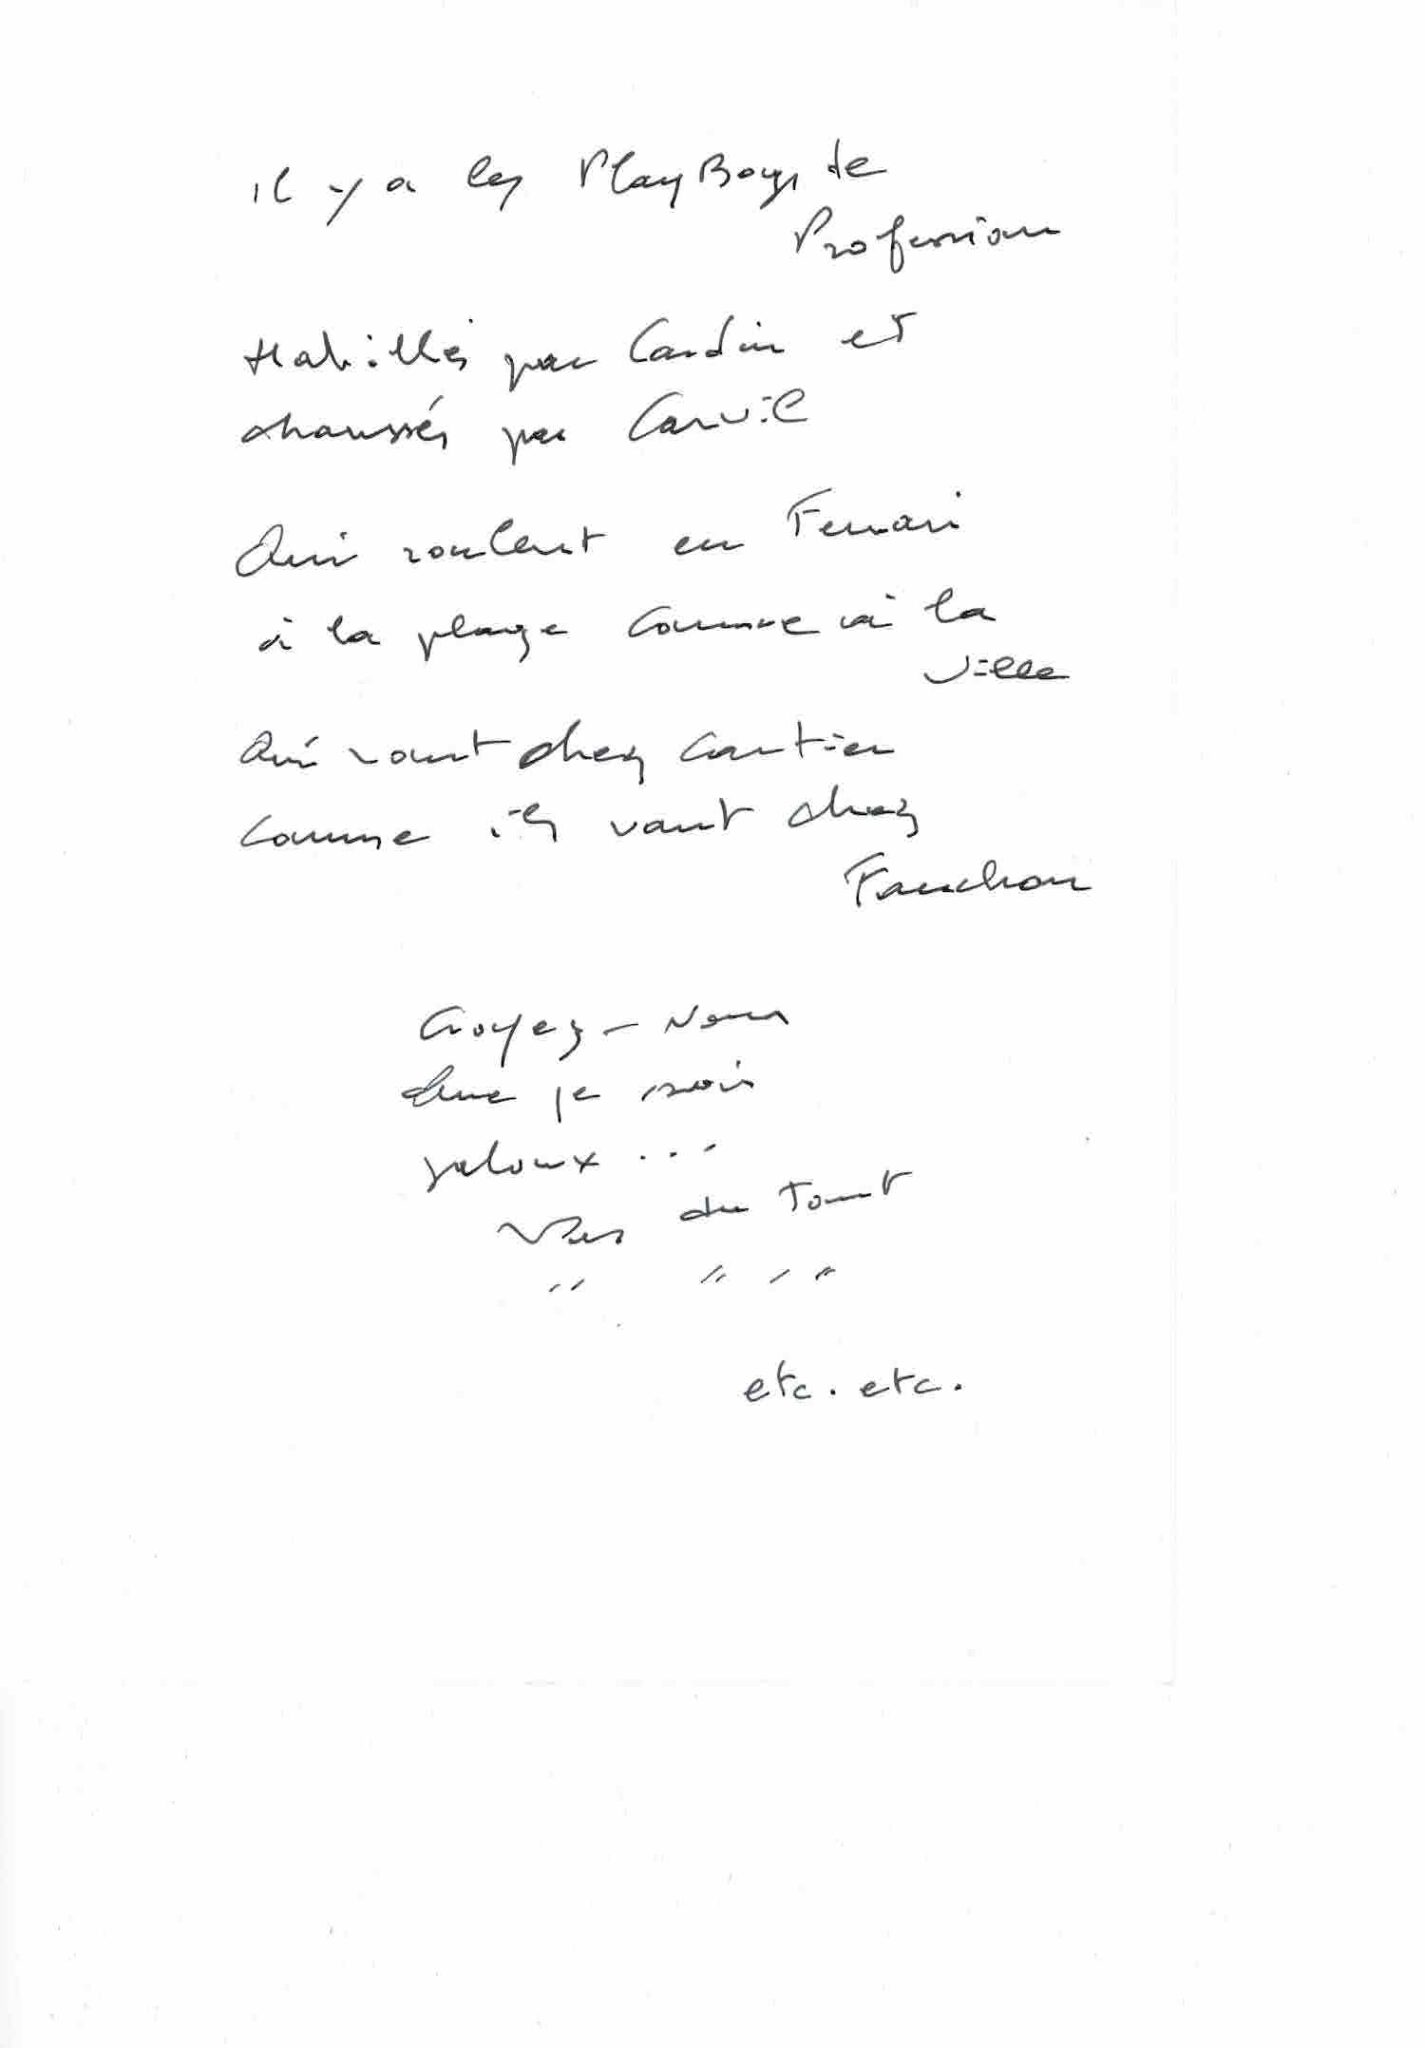 Il y a les PlayBoys de
Profession
Habillés par Cardin et
chaussés par Carvil
Qui roulent en Ferrari
à la plage comme à la
ville
Qui vont chez Cartier
comme ils vont chez
Fauchon
Croyez-Vous
que je sois
jaloux...
Pas du Tout
" " " "
etc. etc.